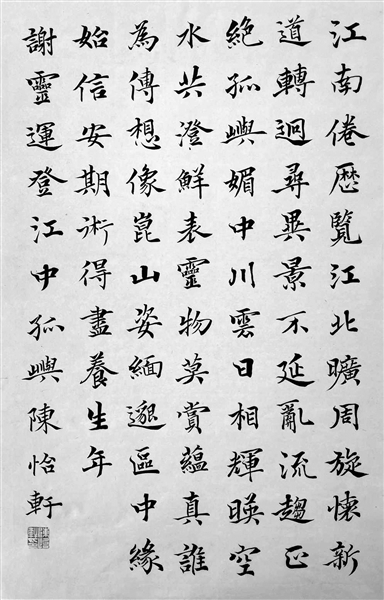 江南倦厯覽江北曠周旋懷新
道轉迥尋異景不延亂流趨正
絕孤嶼媚中川雲日相輝暎空
水共澄鮮表靈物莫賞蘊真誰
為傳想像崑山姿緬邈區中緣
始信安期術得盡養生年
謝靈運登江中孤嶼陳怡軒